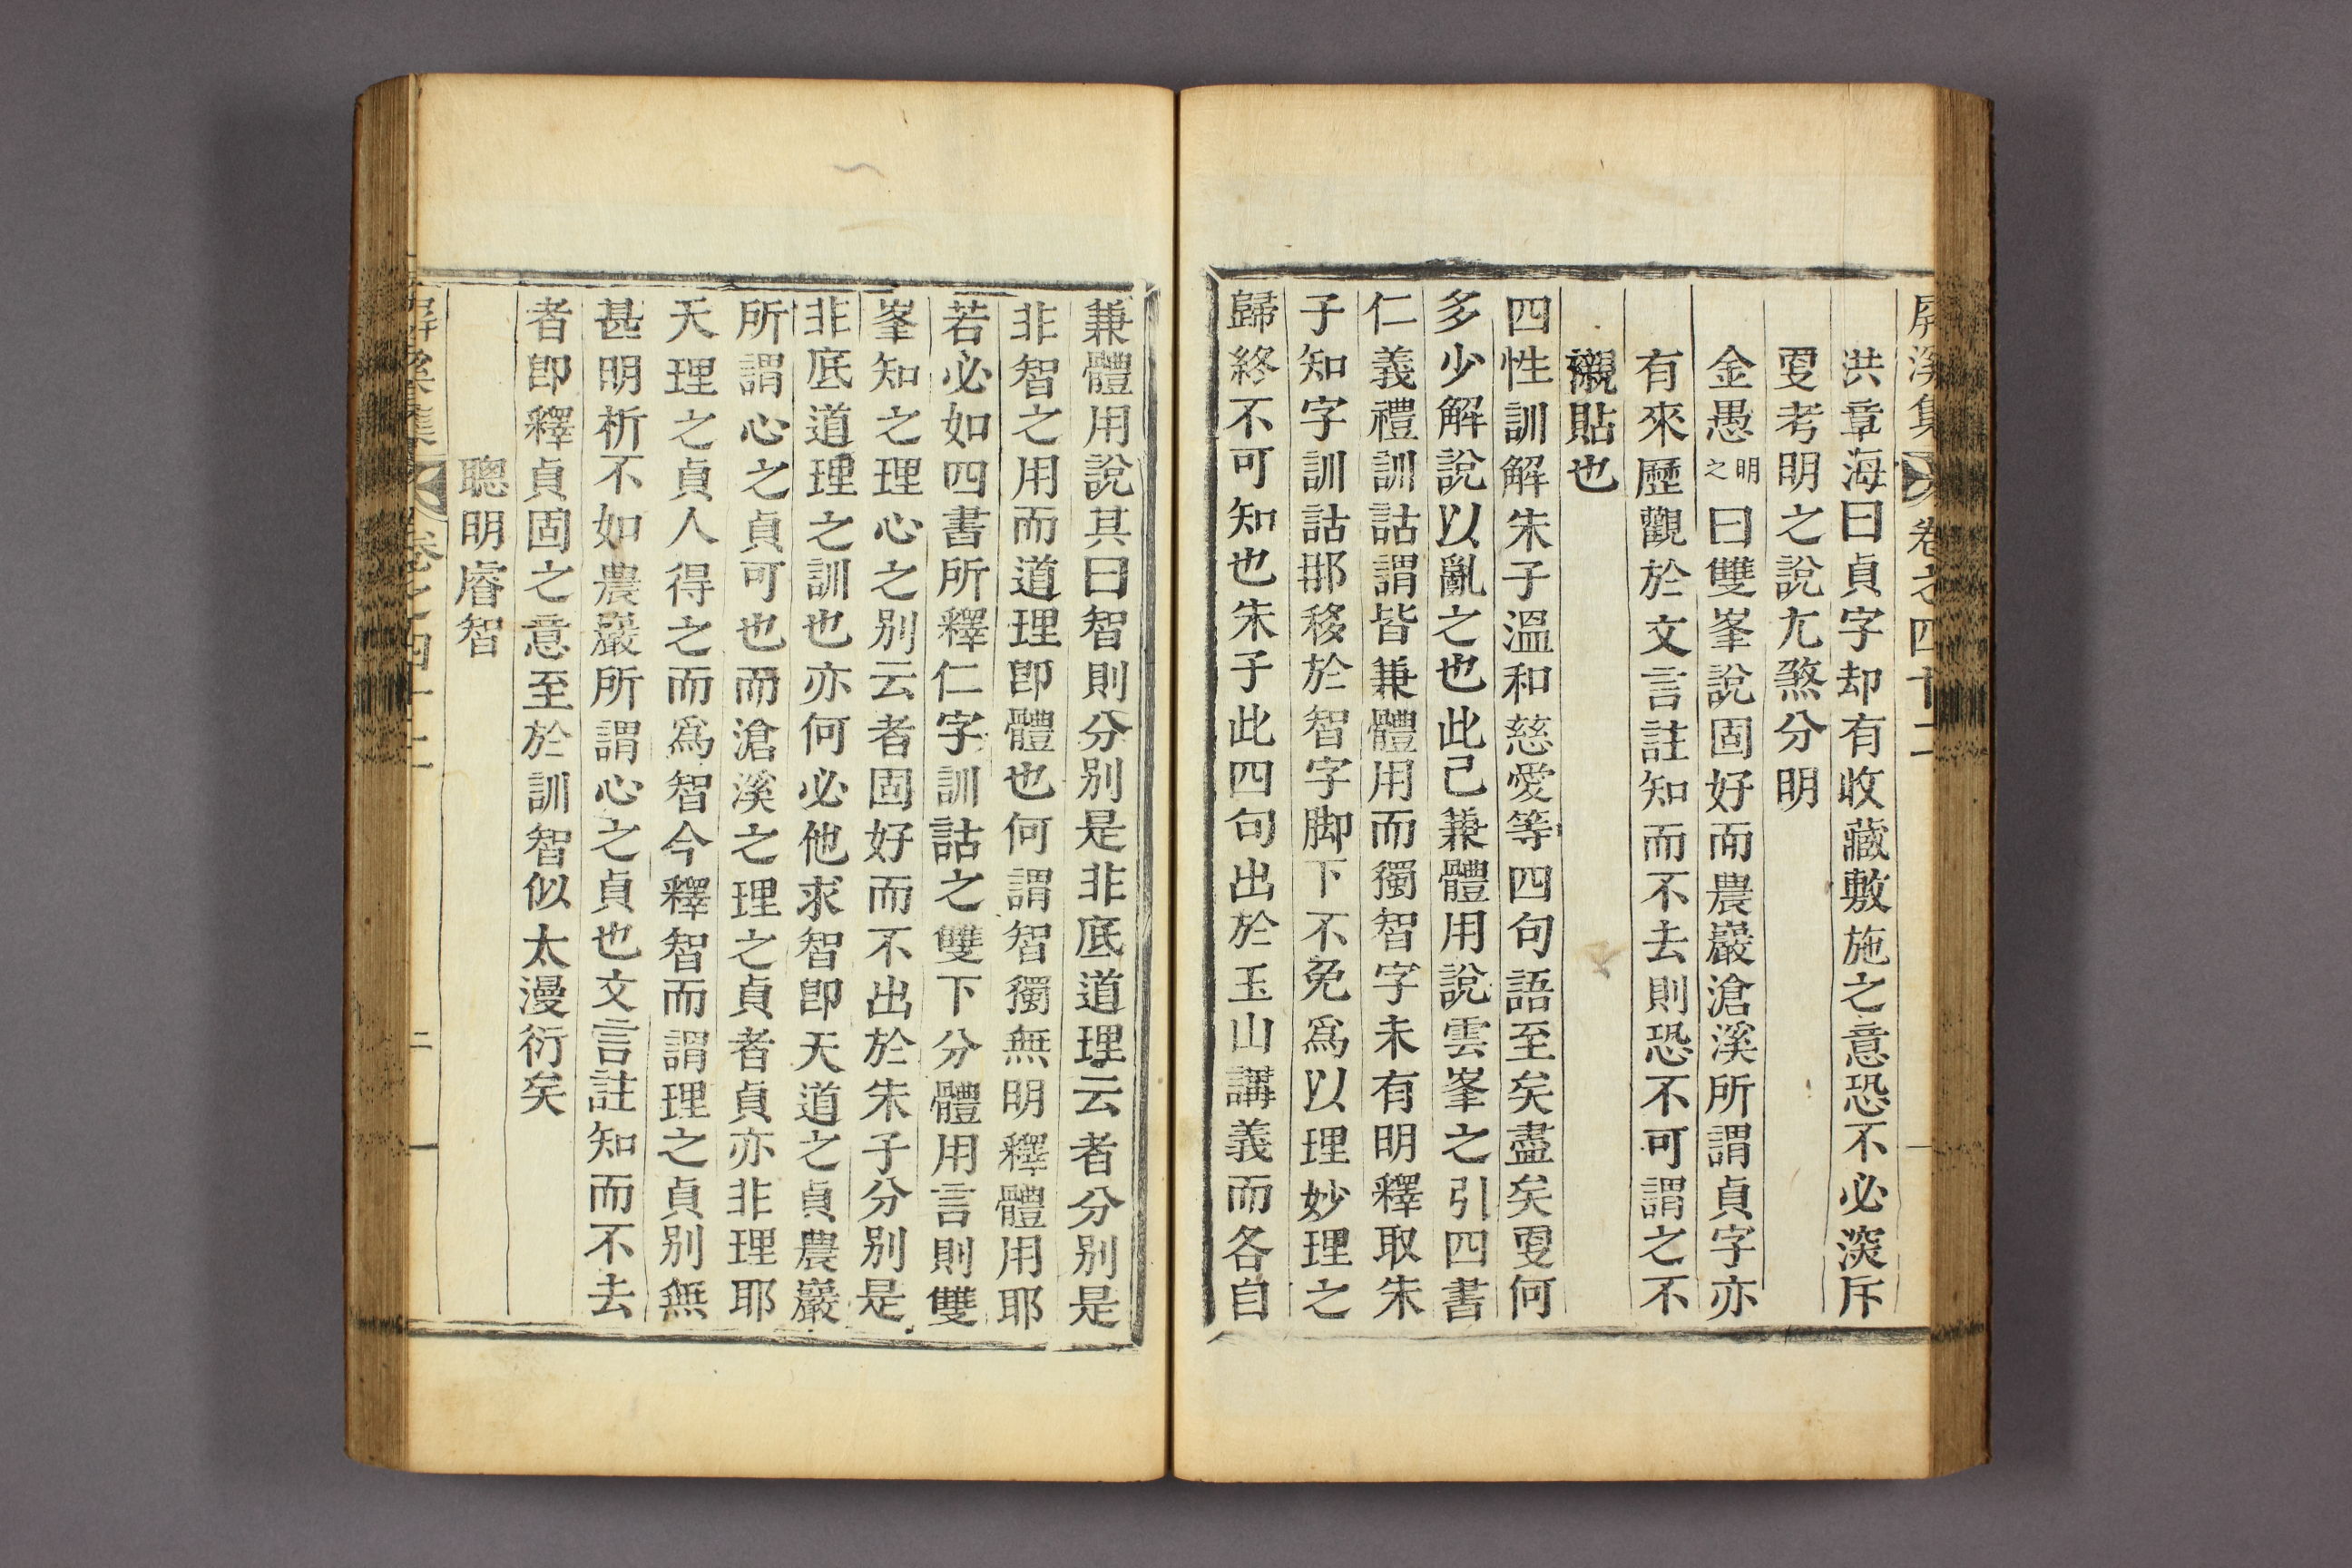 屛溪集 卷之四十二
洪章海曰貞字却有收藏敷施之意恐不必深斥
更考明之說尤煞分明
金愚明之曰雙峯說固好而農巖滄溪所謂貞字亦
有來歷觀於文言註知而不去則恐不可謂之不
襯貼也
四性訓解朱子溫和慈愛等四句語至矣盡矣更何
多少解說以亂之也此已兼體用說雲峯之引四書
仁義禮訓詁謂皆兼體用而獨智字未有明釋取朱
子知字訓詁那移於智字脚下不免爲以理妙理之
歸終不可知也朱子此四句出於玉山講義而各自
兼體用說其曰智則分別是非底道理云者分別是
非智之用而道理卽體也何謂智獨無明釋體用耶
若必如四書所釋仁字訓詁之雙下分體用言則雙
峯知之理心之別云者固好而不出於朱子分別是
非底道理之訓也亦何必他求智卽天道之貞農巖
所謂心之貞可也而滄溪之理之貞者貞亦非理耶
天理之貞人得之而爲智今釋智而謂理之貞別無
甚明析不如農巖所謂心之貞也文言註知而不去
者卽釋貞固之意至於訓智似太漫衍矣
聰明睿智
屛溪集 卷之四十二 二